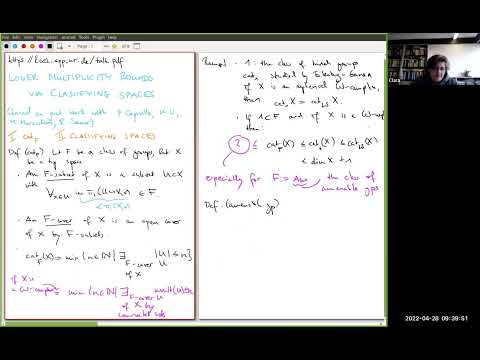 LOWER MULTIPLICITY BOUNDS
VIA CLASSIFYING SPACES
(based on joint work with P. Capovilla, K. Li,
M. Moraschini, R. Sauer)
I cat_F II CLASSIFYING SPACES
Def (cat_F) Let F be a class of groups, let X
be a top space
• An F-subset of X is a subset U⊂X
with
∀ x∈U im π_1(U⊂X,x) ∈ F.
• An F-cover of X is an open cover
of X by F-subsets.
• cat_F(X) := min {n∈ℕ | ∃ F-cover U of X |U| ≤ n}
if X is
a CW-complex = min {n∈ℕ | ∃ F-cover U of X by connected sets mult(U)≤n
Remark • 1: the class of trivial groups
cat_1 studied by Eilenberg-Ganea
if X is an aspherical CW-complex,
then cat_1 X = cat_LS X.
• If 1⊂F and if X is a CW-complex
then:
? ≤ cat_F(X) ≤ cat_1(X) ≤ cat_LS(X)
≤ dim X + 1
especially for F = Am the class of
amenable gps
Def (amenable gp)
Clara
2022-04-28 09:39:51